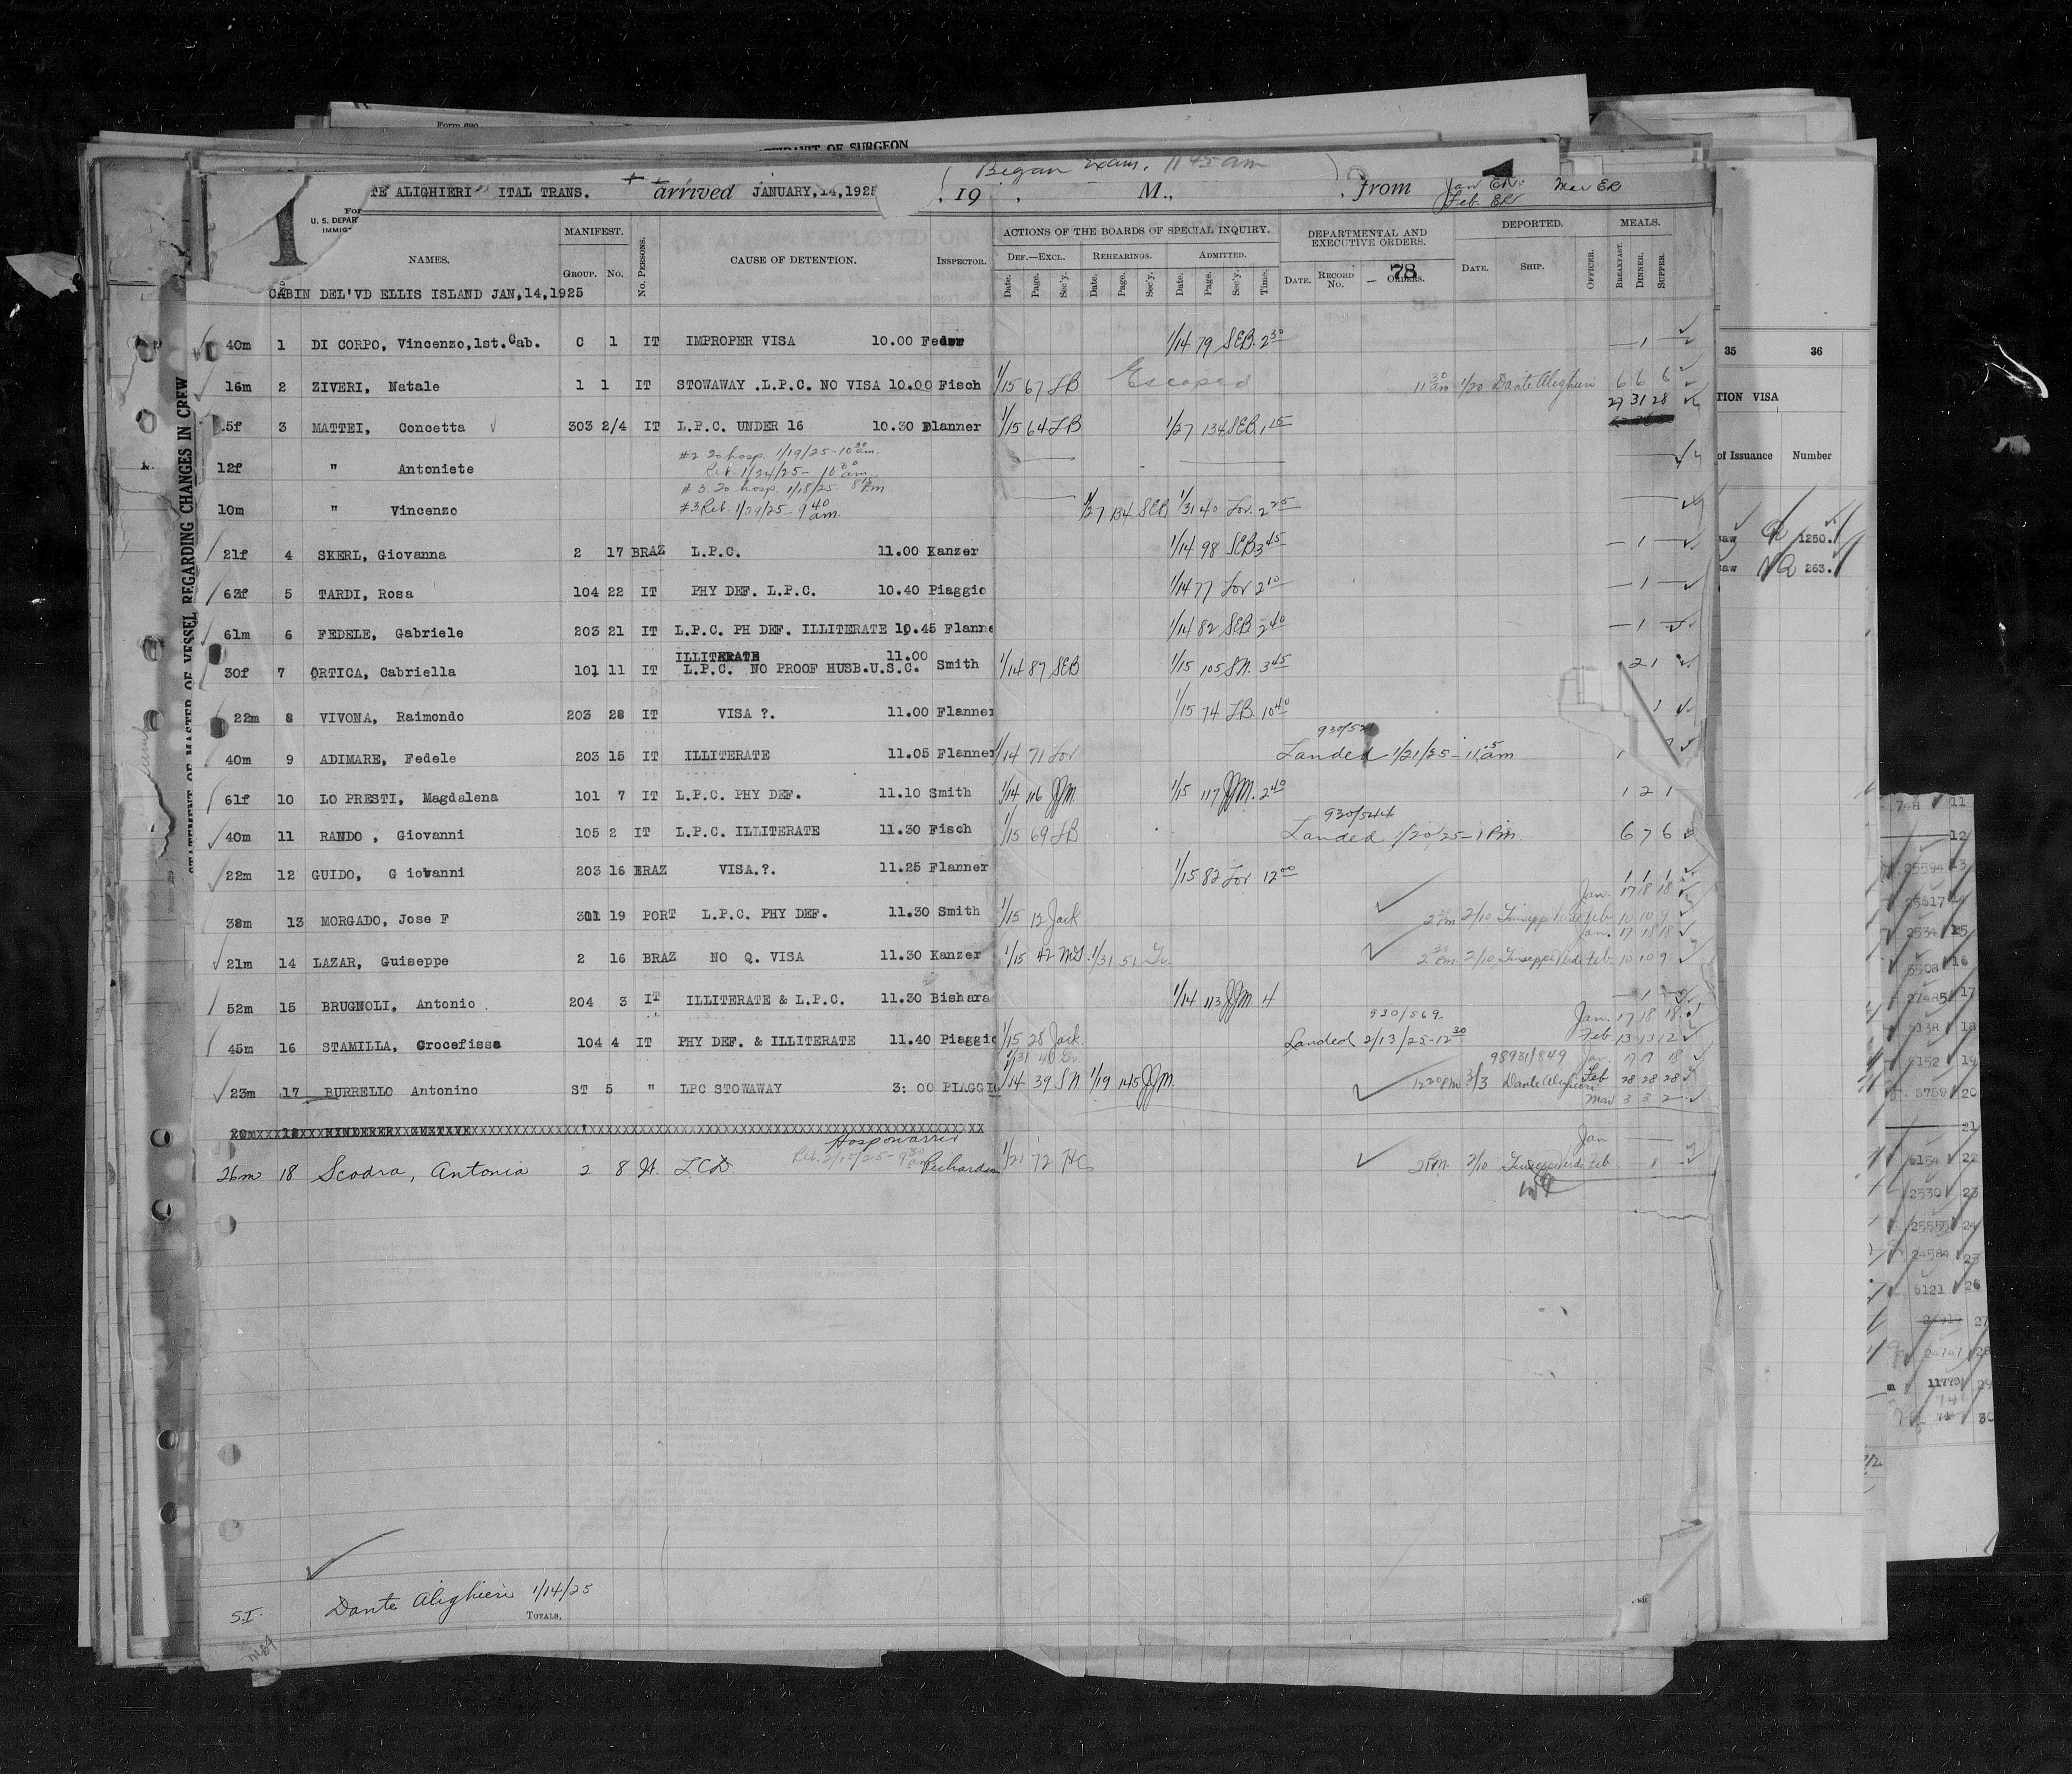 Form 680
AFFIDAVIT OF SURGEON
Began Exam. 11 45 am
TE ALIGHIERI ITAL TRANS. arrived JANUARY,14,1925 , 19 , M., , from Jan ER. Mar ER
Feb. ER
1
For
U. S. DEPAR
IMMIG
MANIFEST. ACTIONS OF THE BOARDS OF SPECIAL INQUIRY. DEPARTMENTAL AND EXECUTIVE ORDERS. DEPORTED. MEALS.
NAMES. GROUP. NO. NO. PERSONS. CAUSE OF DETENTION. INSPECTOR. DEF.—EXCL. REHEARINGS. ADMITTED.
Date. Page. Sec'y. Date. Page. Sec'y. Date. Page. Sec'y. Time. DATE. RECORD NO. ORDERS. 78 DATE. SHIP. OFFICER. BREAKFAST. DINNER. SUPPER.
CABIN DEL'VD ELLIS ISLAND JAN,14,1925
40m 1 DI CORPO, Vincenzo,1st.Cab. C 1 IT IMPROPER VISA 10.00 1/14 79 SEB. 2 30 — 1 —
16m 2 ZIVERI, Natale 1 1 IT STOWAWAY .L.P.C. NO VISA 10.00 Fisch 1/15 67 LB Escaped 11 30 am 1/20 Dante Alighieri 6 6 6
27 31 28
5f 3 MATTEI, Concetta 303 2/4 IT L.P.C. UNDER 16 10.30 Flanner 1/15 64 LB 1/27 134 SEB 1 15
#2 To hosp. 1/19/25-10 30 am.
12f " Antoniete Ret 1/24/25- 10 30 am
#3 To hosp. 1/18/25 8 15 Pm.
10m " Vincenzo #3 Ret. 1/29/25-9 40 am. 1/27 134 SEB 1/31 40 Lov. 2 25
21f 4 SKERL, Giovanna 2 17 BRAZ L.P.C. 11.00 Kanzer 1/14 98 SEB 3 45 — 1 —
63f 5 TARDI, Rosa 104 22 IT PHY DEF. L.P.C. 10.40 Piaggio 1/14 77 Lov 2 10 — 1 —
61m 6 FEDELE, Gabriele 203 21 IT L.P.C. PH DEF. ILLITERATE 10.45 Flanne 1/14 82 SEB 2 40 — 1 —
ILLITERATE 11.00
30f 7 ORTICA, Cabriella 101 11 IT L.P.C. NO PROOF HUSB.U.S.C. Smith 1/14 87 SEB 1/15 105 SN. 3 45 2 1
22m 8 VIVONA, Raimondo 203 28 IT VISA ?. 11.00 Flanner 1/15 74 LB 10 40 1
40m 9 ADIMARE, Fedele 203 15 IT ILLITERATE 11.05 Flanner 1/14 71 Lov Landed 1/21/25 - 11 15 am 1
61f 10 LO PRESTI, Magdalena 101 7 IT L.P.C. PHY DEF. 11.10 Smith 1/14 116 JJM. 1/15 117 JJM. 2 40 1 2 1
930/544
40m 11 RANDO , Giovanni 105 2 IT L.P.C. ILLITERATE 11.30 Fisch 1/15 69 LB Landed 1/20/25-1 Pm 6 7 6
22m 12 GUIDO, G iovanni 203 16 BRAZ VISA.?. 11.25 Flanner 1/15 82 Lov 12 00 1 1 1
Jan. 17 18 18
38m 13 MORGADO, Jose F 301 19 PORT L.P.C. PHY DEF. 11.30 Smith 1/15 12 Jack 2 30 Pm 2/10 Giuseppi Verdi Feb 10 10 9
Jan. 17 18 18
21m 14 LAZAR, Guiseppe 2 16 BRAZ NO Q. VISA 11.30 Kanzer 1/15 42 1/31 51 2 30 Pm 2/10 Giuseppi Verdi Feb 10 10 9
52m 15 BRUGNOLI, Antonio 204 3 IT ILLITERATE & L.P.C. 11.30 Bishara 1/14 113 JJM 4 — 1 —
930/569 Jan. 17 18 18
45m 16 STAMILLA, Crocefissa 104 4 IT PHY DEF. & ILLITERATE 11.40 Piaggio 1/15 28 Jack. Landed 2/13/25-12 30 Feb 13 13 12
98931/849 Jan. 17 17 18
23m 17 BURRELLO Antonino ST 5 " LPC STOWAWAY 3: 00 PIAGGIO 1/14 39 SN. 1/19 145 JJM. 12 20 PM 3/3 Dante Alighieri Feb 28 28 28
Mar 3 3 2
20m 18 KINDERER GUSTAVE
Jan
26m 18 Scodra, Antonia 2 8 It. Richardson 1/21 72 HC 2 Pm. 2/10 Giuseppi Verdi Feb — 1 —
S.I. Dante Alighieri 1/14/25
TOTALS,
STATEMENT OF MASTER OF VESSEL REGARDING CHANGES IN CREW
35 36
TION VISA
of Issuance Number
1250.
263.
748 11
12
25594 13
25517 14
2534 15
5508 16
27485 17
5138 18
5152 19
5759 20
21
5154 22
2530 23
25555 24
24584 25
5121 26
27
28
11770 29
30